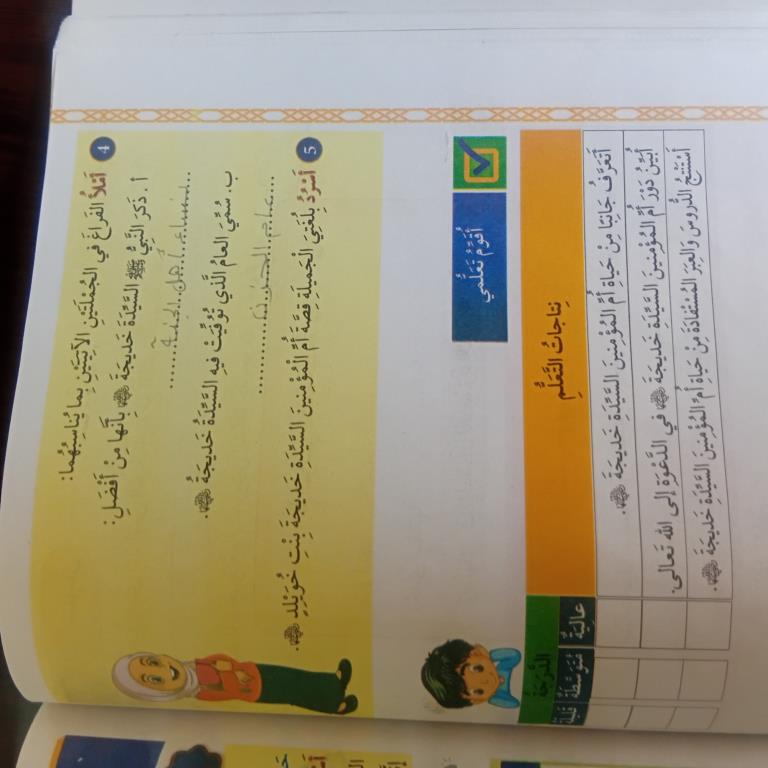 4 أَمْلَأُ الفَراغَ في الجُمْلَتَيْنِ الآتِيَتَيْنِ بِما يُناسِبُهُما:
أ . ذَكَرَ النَّبِيُّ ﷺ السَّيِّدَةَ خَديجَةَ بِأَنَّها مِنْ أَفْضَلِ:
نساء أهل الجنة
ب. سُمِّيَ العامُ الَّذي تُوُفِّيَتْ فيهِ السَّيِّدَةُ خَديجَةُ .
عام الحزن
5 أَسْرُدُ بِلُغَتِيَ الْجَميلَةِ قِصَّةَ أُمِّ الْمُؤْمِنينَ السَّيِّدَةِ خَديجَةَ بِنْتِ خُوَيْلِدٍ .
أُقَوِّمُ تَعَلُّمي
نِتاجاتُ التَّعَلُّمِ
الدَّرَجَةُ
عالِيَةٌ مُتَوَسِّطَةٌ قَليلَةٌ
أَتَعَرَّفُ جانِبًا مِنْ حَياةِ أُمِّ الْمُؤْمِنينَ السَّيِّدَةِ خَديجَةَ .
أُبَيِّنُ دَوْرَ أُمِّ الْمُؤْمِنينَ السَّيِّدَةِ خَديجَةَ في الدَّعْوَةِ إلى اللهِ تَعالى.
أَسْتَنْتِجُ الدُّروسَ وَالعِبَرَ الْمُسْتَفادَةَ مِنْ حَياةِ أُمِّ الْمُؤْمِنينَ السَّيِّدَةِ خَديجَةَ .